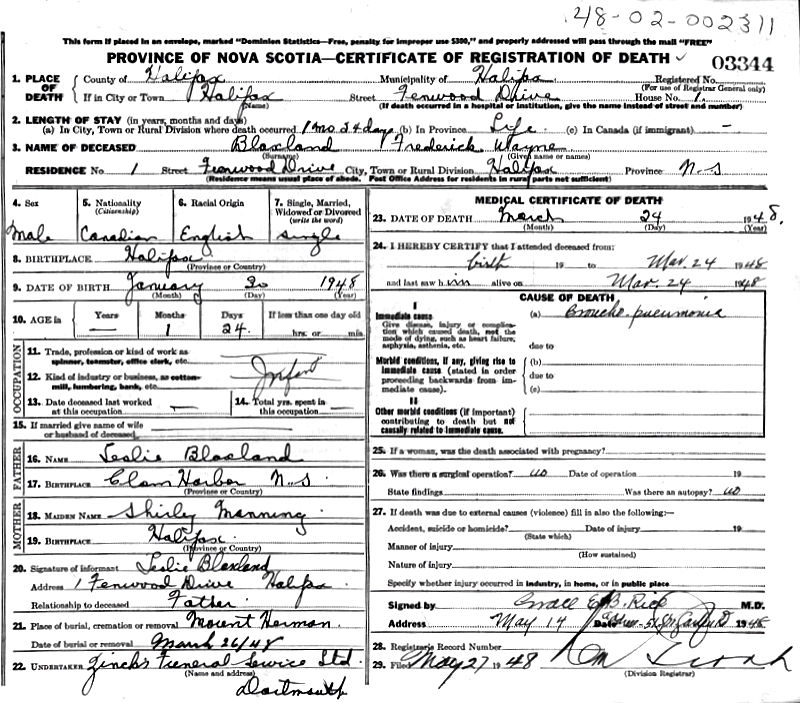 48-02-002311
This form if placed in an envelope, marked "Dominion Statistics—Free, penalty for improper use $300," and properly addressed will pass through the mail "FREE"
PROVINCE OF NOVA SCOTIA—CERTIFICATE OF REGISTRATION OF DEATH
03344
1. PLACE OF DEATH
County of Halifax Municipality of Halifax Registered No.
(For use of Registrar General only)
If in City or Town Halifax Street Fenwood Drive House No. 1.
(Name) (If death occurred in a hospital or institution, give the name instead of street and number)
2. LENGTH OF STAY (in years, months and days)
(a) In City, Town or Rural Division where death occurred 1 mo. 24 days (b) In Province Life (c) In Canada (if immigrant) —
3. NAME OF DECEASED Blaxland Frederick Wayne
(Surname) (Given name or names)
RESIDENCE No. 1 Street Fenwood Drive City, Town or Rural Division Halifax Province N.S
(Residence means usual place of abode. Post Office Address for residents in rural parts not sufficient)
4. Sex
Male
5. Nationality
(Citizenship)
Canadian
6. Racial Origin
English
7. Single, Married, Widowed or Divorced
(write the word)
single
8. BIRTHPLACE Halifax
(Province or Country)
9. DATE OF BIRTH January 30 1948
(Month) (Day) (Year)
10. AGE in
Years —
Months 1
Days 24.
If less than one day old
hrs. or min.
OCCUPATION
11. Trade, profession or kind of work as spinner, teamster, office clerk, etc.
12. Kind of industry or business, as cotton-mill, lumbering, bank, etc.
Infant
13. Date deceased last worked at this occupation —
14. Total yrs. spent in this occupation —
15. If married give name of wife or husband of deceased
FATHER
16. NAME Leslie Blaxland
17. BIRTHPLACE Clam Harbor N.S
(Province or Country)
MOTHER
18. MAIDEN NAME Shirley Manning
19. BIRTHPLACE Halifax
(Province or Country)
20. Signature of informant Leslie Blaxland
Address 1 Fenwood Drive Halifax
Relationship to deceased Father
21. Place of burial, cremation or removal Mount Herman
Date of burial or removal March 26/48
22. UNDERTAKER Zincks Funeral Service Ltd.
(Name and address)
Dartmouth
MEDICAL CERTIFICATE OF DEATH
23. DATE OF DEATH March 24 1948.
(Month) (Day) (Year)
24. I HEREBY CERTIFY that I attended deceased from:
birth 19 to Mar. 24 1948
and last saw him alive on Mar. 24 1948
CAUSE OF DEATH
I
Immediate cause
Give disease, injury or complication which caused death, not the mode of dying, such as heart failure, asphyxia, asthenia, etc.
(a) Broncho-pneumonia
due to
Morbid conditions, if any, giving rise to immediate cause (stated in order proceeding backwards from immediate cause).
(b)
due to
(c)
II
Other morbid conditions (if important) contributing to death but not causally related to immediate cause.
25. If a woman, was the death associated with pregnancy?
26. Was there a surgical operation? no Date of operation 19
State findings Was there an autopsy? no
27. If death was due to external causes (violence) fill in also the following:—
Accident, suicide or homicide? Date of injury 19
(State which)
Manner of injury
(How sustained)
Nature of injury
Specify whether injury occurred in industry, in home, or in public place
Signed by E. B. Rice M.D.
Address May 14 Date 1948
28. Registrars Record Number
29. Filed May 27 1948
(Division Registrar)